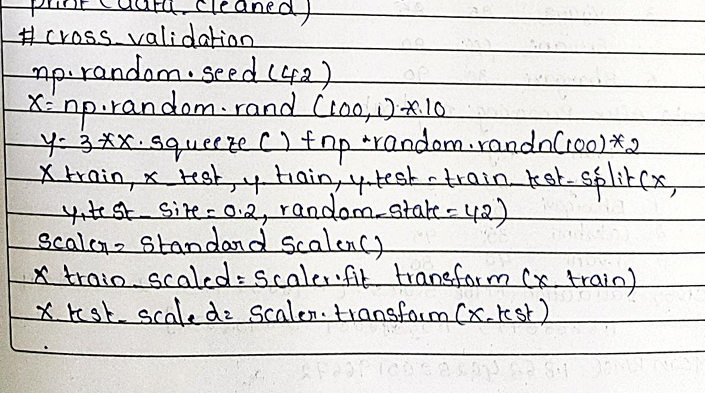 print (data_cleaned)
# cross_validation
np.random.seed (42)
x= np.random.rand (100,1)*10
y= 3*x.squeeze () + np.random.randn(100)*2
x train, x_test, y_train, y_test = train_test_split(x,
y, test_size = 0.2, random_state = 42)
scaler = Standard Scaler()
x train_scaled = scaler.fit_transform (x_train)
x test_scaled = scaler.transform (x_test)